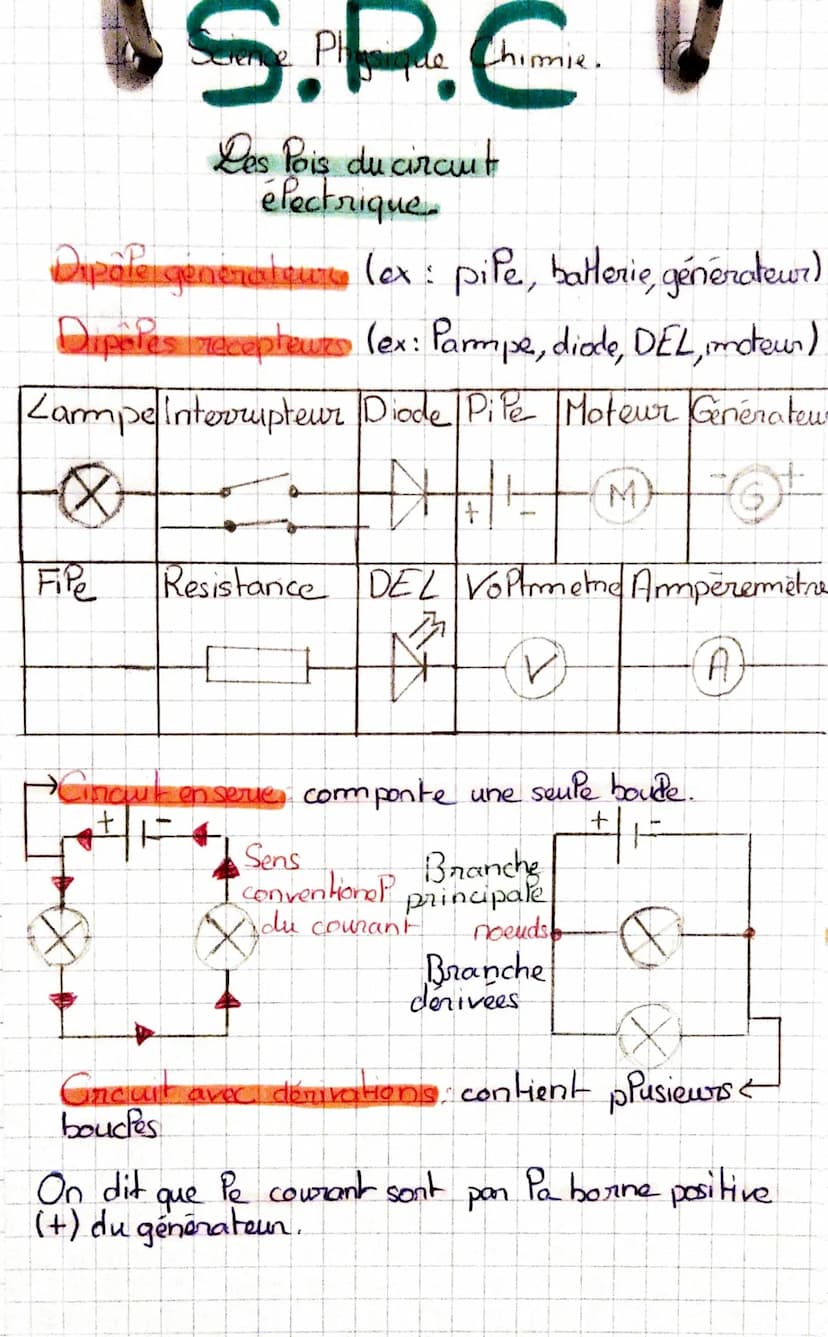 S.P.C
Science Physique Chimie.
Les lois du circuit
électrique.
Dipôle générateurs (ex : pile, batterie, générateur)
Dipôles récepteurs (ex: lampe, diode, DEL, moteur)
Lampe Interrupteur Diode Pile Moteur Générateur
+ - M - G +
File Resistance DEL Voltmetre Ampèremètre
V A
Circuit en serie comporte une seule boucle.
+ - + -
Sens
conventionel
du courant
Branche
principale
noeuds
Branche
dérivées
Circuit avec dérivations: contient plusieurs
boucles
On dit que le courant sort par la borne positive
(+) du générateur.